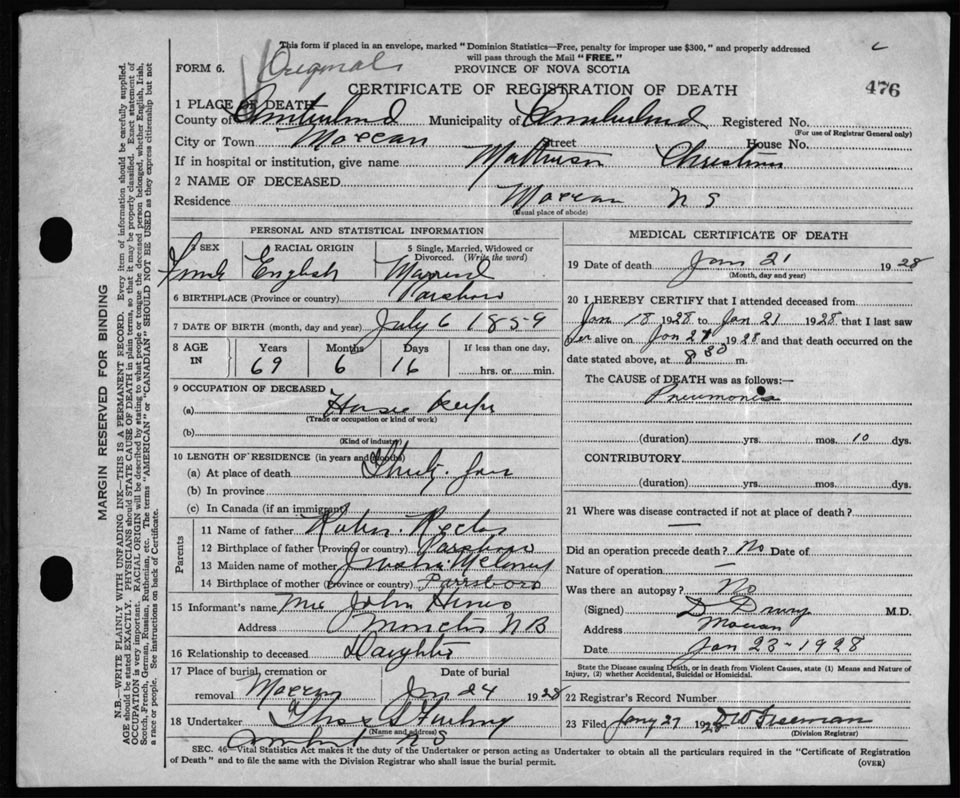 This form if placed in an envelope, marked "Dominion Statistics—Free, penalty for improper use $300," and properly addressed
will pass through the Mail "FREE."
FORM 6. Originals PROVINCE OF NOVA SCOTIA
CERTIFICATE OF REGISTRATION OF DEATH 476
1 PLACE OF DEATH
County of Cumberland Municipality of Cumberland Registered No.
(For use of Registrar General only)
City or Town Maccan Street House No.
If in hospital or institution, give name Matheson Christina
2 NAME OF DECEASED
Residence Maccan N S
(Usual place of abode)
PERSONAL AND STATISTICAL INFORMATION
3 SEX 4 RACIAL ORIGIN 5 Single, Married, Widowed or
Divorced. (Write the word)
Female English Married
6 BIRTHPLACE (Province or country) Parsboro
7 DATE OF BIRTH (month, day and year) July 6 1859
8 AGE IN Years Months Days If less than one day,
69 6 16 hrs. or min.
9 OCCUPATION OF DECEASED
(a) House Keeper
(Trade or occupation or kind of work)
(b)
(Kind of industry)
10 LENGTH OF RESIDENCE (in years and months)
(a) At place of death Thirty
(b) In province
(c) In Canada (if an immigrant)
Parents
11 Name of father
12 Birthplace of father (Province or country) Parsboro
13 Maiden name of mother
14 Birthplace of mother (Province or country) Parrsboro
15 Informant's name Mrs John
Address Moncton N B
16 Relationship to deceased Daughter
17 Place of burial, cremation or Date of burial
removal Maccan Jan 24 1928
18 Undertaker Thos S Furlong
(Name and address)
Amherst N S
MEDICAL CERTIFICATE OF DEATH
19 Date of death Jan 21 1928
(Month, day and year)
20 I HEREBY CERTIFY that I attended deceased from
Jan 18 1928 to Jan 21 1928 that I last saw
her alive on Jan 21 1928 and that death occurred on the
date stated above, at 8 30 m.
The CAUSE of DEATH was as follows:—
Pneumonia
(duration) yrs. mos. 10 dys.
CONTRIBUTORY
(duration) yrs. mos. dys.
21 Where was disease contracted if not at place of death?
—
Did an operation precede death? No Date of
Nature of operation —
Was there an autopsy? No
(Signed) D Drury M.D.
Address Maccan
Date Jan 23-1928
State the Disease causing Death, or in death from Violent Causes, state (1) Means and Nature of
Injury, (2) whether Accidental, Suicidal or Homicidal.
22 Registrar's Record Number
23 Filed Jany 27 1928 Freeman
(Division Registrar)
SEC. 46—Vital Statistics Act makes it the duty of the Undertaker or person acting as Undertaker to obtain all the particulars required in the "Certificate of Registration
of Death" and to file the same with the Division Registrar who shall issue the burial permit. (OVER)
MARGIN RESERVED FOR BINDING
N.B.—WRITE PLAINLY WITH UNFADING INK—THIS IS A PERMANENT RECORD. Every item of information should be carefully supplied.
AGE should be stated EXACTLY. PHYSICIANS should STATE CAUSE OF DEATH in plain terms, so that it may be properly classified. Exact statement of
OCCUPATION is very important. RACIAL ORIGIN will be described by stating to what people or tongue the deceased person belonged, whether English, Irish,
Scotch, French, German, Russian, Ruthenian, etc. The terms "AMERICAN" or "CANADIAN" SHOULD NOT BE USED as they express citizenship but not
a race or people. See instructions on back of Certificate.